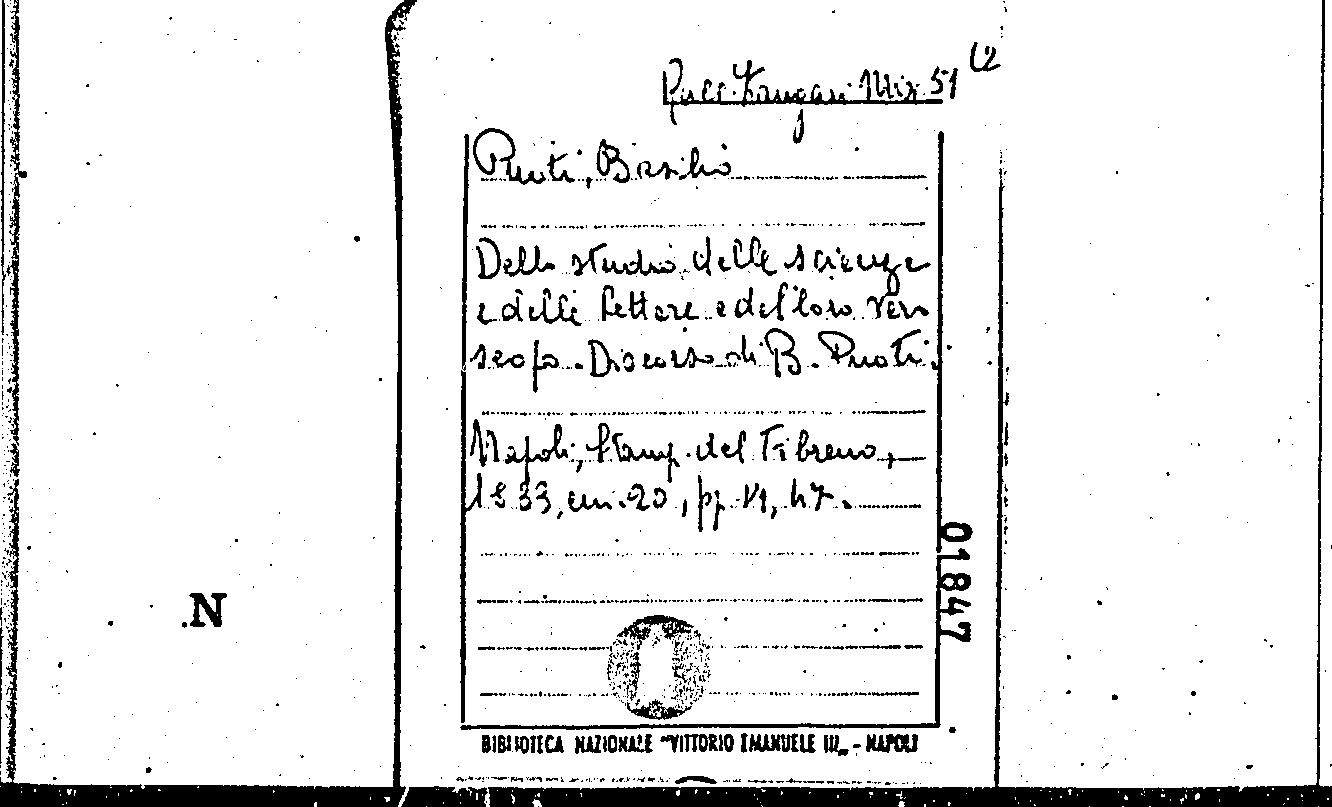 Racc. Zangari Mis. 51 (2
Puoti, Basilio
Dello studio delle scienze
e delle lettere e del loro vero
scopo. Discorso di B. Puoti.
Napoli, Stamp. del Fibreno,
1833, cm. 20, pp. VI, 47.
01847
N
BIBLIOTECA NAZIONALE "VITTORIO EMANUELE III„ - NAPOLI